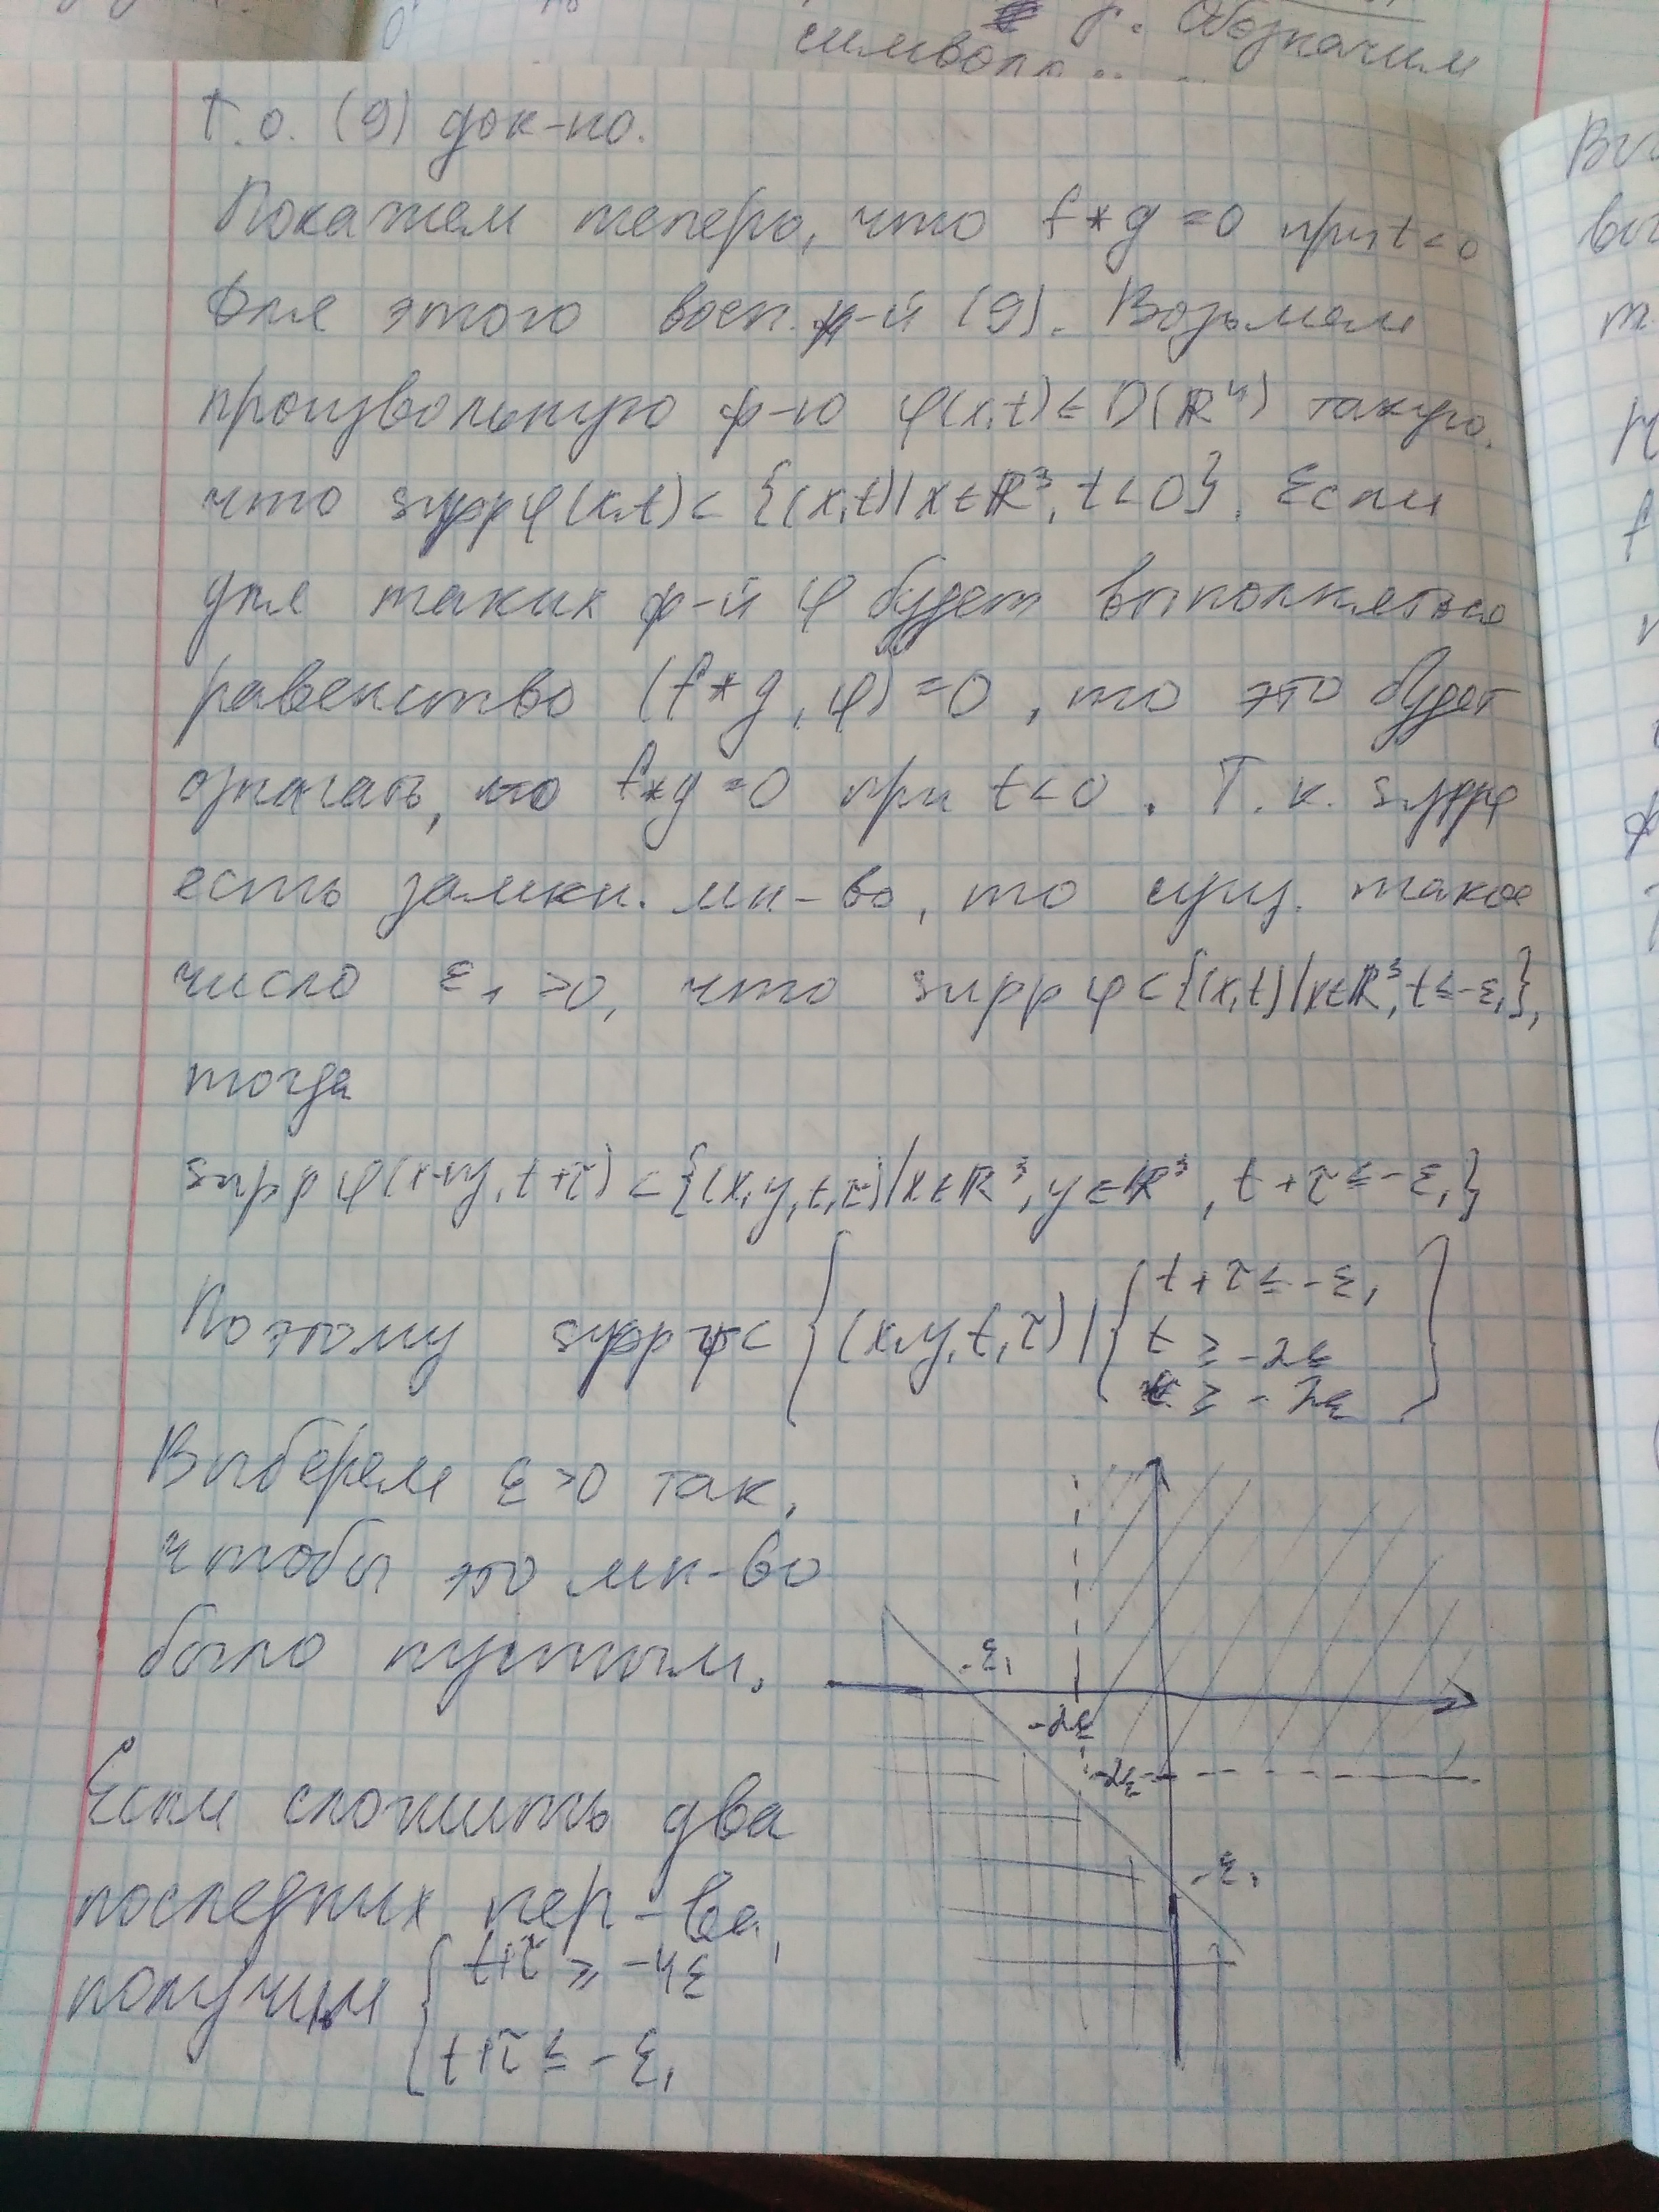 γ. Обозначим
символ
Т.о. (9) док-но.
Покажем теперь, что f*g=0 при t<0
Для этого восп. ф-й (9). Возьмем
произвольную ф-ю φ(x,t)∈D(ℝ⁴) такую,
что supp φ(x,t)⊂{(x,t)|x∈ℝ³, t<0}. Если
для таких ф-й φ будет выполняться
равенство (f*g, φ)=0, то это будет
означать, что f*g=0 при t<0. Т.к. supp φ
есть замкн. мн-во, то сущ. такое
число ε₁>0, что supp φ⊂{(x,t)|x∈ℝ³, t≤-ε₁},
тогда
supp φ(x+y, t+τ)⊂{(x,y,t,τ)|x∈ℝ³, y∈ℝ³, t+τ≤-ε₁}
Поэтому supp ψ⊂ {(x,y,t,τ)| { t+τ≤-ε₁
t ≥ -2ε
τ ≥ -2ε }
Выберем ε>0 так,
чтобы это мн-во
было пустым.
-ε₁
-2ε
-2ε
-ε₁
Если сложить два
последних нер-ва,
получим { t+τ ≥ -4ε
t+τ ≤ -ε₁